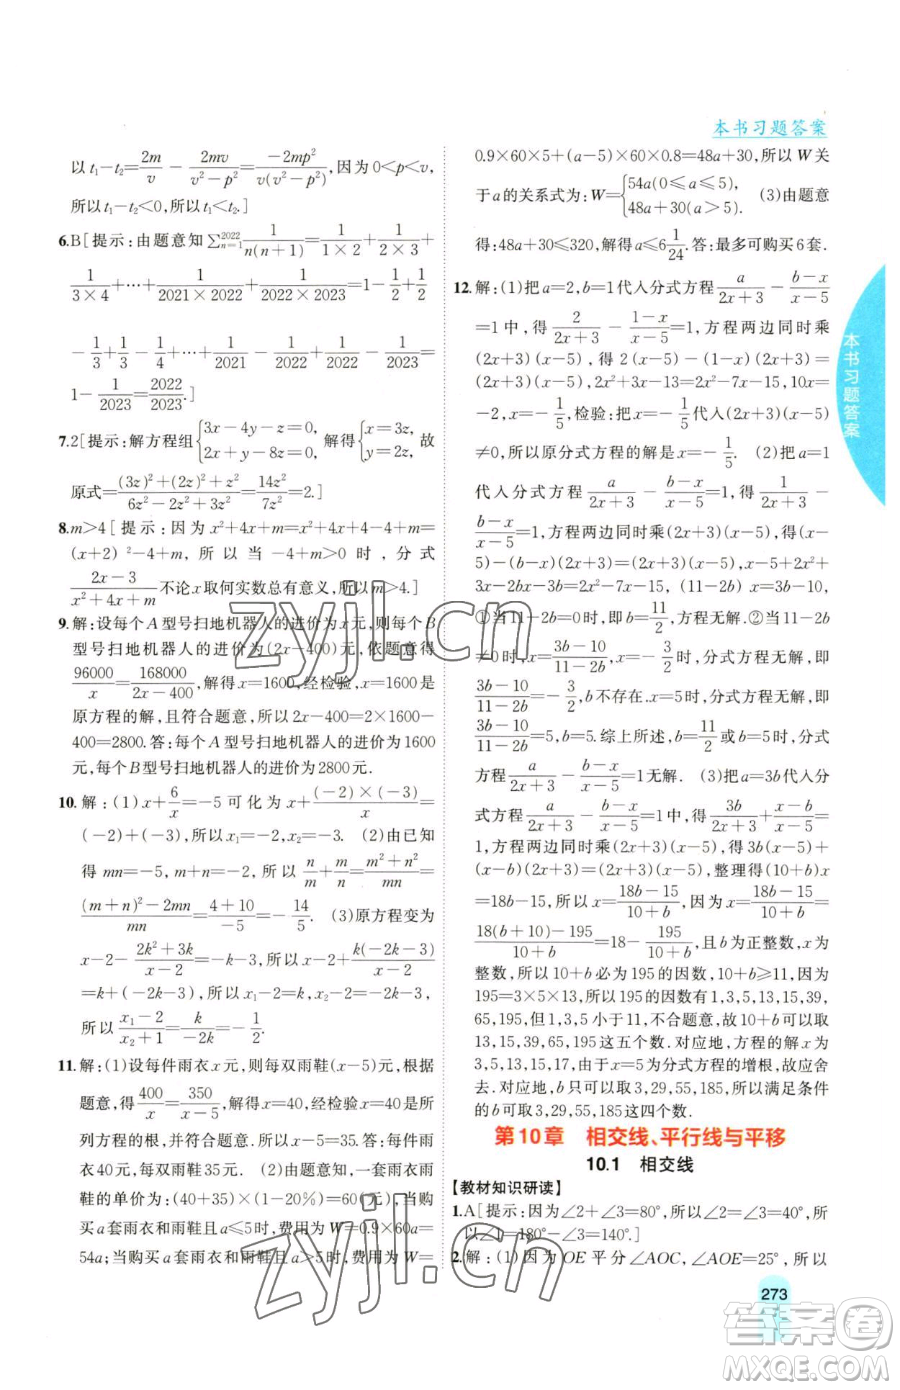 本书习题答案
以 t₁-t₂=2m/v - 2mv/(v²-p²)=-2mp²/(v(v²-p²)),因为0<p<v,
所以 t₁-t₂<0,所以 t₁<t₂.]
6.B[提示:由题意知∑²⁰²²ₙ₌₁ 1/(n(n+1))=1/(1×2)+1/(2×3)+
1/(3×4)+…+1/(2021×2022)+1/(2022×2023)=1-1/2+1/2
-1/3+1/3-1/4+…+1/2021-1/2022+1/2022-1/2023=
1-1/2023=2022/2023.]
7.2[提示:解方程组{3x-4y-z=0, 2x+y-8z=0, 解得{x=3z, y=2z, 故
原式=((3z)²+(2z)²+z²)/(6z²-2z²+3z²)=14z²/7z²=2.]
8.m>4[提示:因为x²+4x+m=x²+4x+4-4+m=
(x+2)²-4+m,所以当-4+m>0时,分式
(2x-3)/(x²+4x+m)不论x取何实数总有意义,所以m>4.]
9.解:设每个A型号扫地机器人的进价为x元,则每个B
型号扫地机器人的进价为(2x-400)元,依题意得
96000/x=168000/(2x-400),解得x=1600,经检验,x=1600是
原方程的解,且符合题意,所以2x-400=2×1600-
400=2800.答:每个A型号扫地机器人的进价为1600
元,每个B型号扫地机器人的进价为2800元.
10.解:(1)x+6/x=-5可化为x+(-2)×(-3)/x=
(-2)+(-3),所以x₁=-2,x₂=-3. (2)由已知
得mn=-5,m+n=2,所以n/m+m/n=(m²+n²)/mn=
((m+n)²-2mn)/mn=(4+10)/-5=-14/5. (3)原方程变为
x-2-(2k²+3k)/(x-2)=-k-3,所以x-2+k(-2k-3)/(x-2)
=k+(-2k-3),所以x₁-2=-2k-3,x₂-2=k,
所以(x₁-2)/(x₂+1)=k/(-2k)=-1/2.
11.解:(1)设每件雨衣x元,则每双雨鞋(x-5)元,根据
题意,得400/x=350/(x-5),解得x=40,经检验x=40是所
列方程的根,并符合题意,所以x-5=35.答:每件雨
衣40元,每双雨鞋35元. (2)由题意,一套雨衣雨
鞋的单价为:(40+35)×(1-20%)=60(元),当购
买a套雨衣和雨鞋且a≤5时,费用为W=0.9×60a=
54a;当购买a套雨衣和雨鞋且a>5时,费用为W=
0.9×60×5+(a-5)×60×0.8=48a+30,所以W关
于a的关系式为:W={54a(0≤a≤5), 48a+30(a>5). (3)由题意
得:48a+30≤320,解得a≤6 1/24.答:最多可购买6套.
12.解:(1)把a=2,b=1代入分式方程a/(2x+3)-(b-x)/(x-5)
=1中,得2/(2x+3)-(1-x)/(x-5)=1,方程两边同时乘
(2x+3)(x-5),得2(x-5)-(1-x)(2x+3)=
(2x+3)(x-5),2x²+3x-13=2x²-7x-15,10x=
-2,x=-1/5,检验:把x=-1/5代入(2x+3)(x-5)
≠0,所以原分式方程的解是x=-1/5. (2)把a=1
代入分式方程a/(2x+3)-(b-x)/(x-5)=1,得1/(2x+3)-
(b-x)/(x-5)=1,方程两边同时乘(2x+3)(x-5),得(x-
5)-(b-x)(2x+3)=(2x+3)(x-5),x-5+2x²+
3x-2bx-3b=2x²-7x-15, (11-2b)x=3b-10,
①当11-2b=0时,即b=11/2,方程无解.②当11-2b
≠0时,x=(3b-10)/(11-2b),x=-3/2时,分式方程无解,即
(3b-10)/(11-2b)=-3/2,b不存在.x=5时,分式方程无解,即
(3b-10)/(11-2b)=5,b=5.综上所述,b=11/2或b=5时,分式
方程a/(2x+3)-(b-x)/(x-5)=1无解. (3)把a=3b代入分
式方程a/(2x+3)-(b-x)/(x-5)=1中,得3b/(2x+3)+(x-b)/(x-5)=
1,方程两边同时乘(2x+3)(x-5),得3b(x-5)+
(x-b)(2x+3)=(2x+3)(x-5),整理得(10+b)x
=18b-15,所以x=(18b-15)/(10+b),因为x=(18b-15)/(10+b)=
(18(b+10)-195)/(10+b)=18-195/(10+b),且b为正整数,x为
整数,所以10+b必为195的因数,10+b≥11,因为
195=3×5×13,所以195的因数有1,3,5,13,15,39,
65,195.但1,3,5小于11,不合题意,所以10+b可以取
13,15,39,65,195这五个数.对应地,方程的解x为3,
5,13,15,17,由于x=5为分式方程的增根,故应舍
去.对应地,b只可以取3,29,55,185,所以满足条件
的b可取3,29,55,185这四个数.
第10章 相交线、平行线与平移
10.1 相交线
【教材知识研读】
1.A[提示:因为∠2+∠3=80°,所以∠2=∠3=40°,所
以∠1=180°-∠3=140°.]
2.解:(1)因为OE平分∠AOC,∠AOE=25°,所以
本书习题答案
273
zyjl.cn
zyjl.cn
答案圈
MXQE.COM